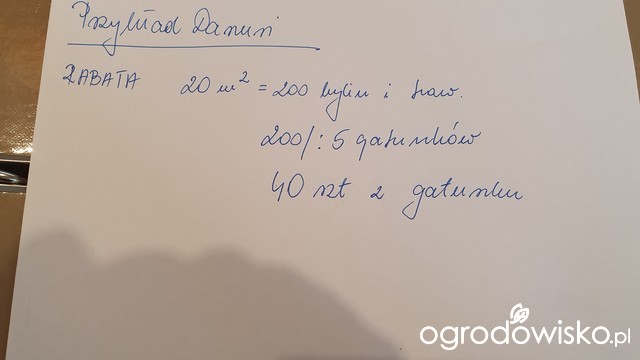 Przykład Danusi
RABATA 20 m² = 200 bylin i traw.
200/: 5 gatunków
40 szt z gatunku
ogrodowisko.pl